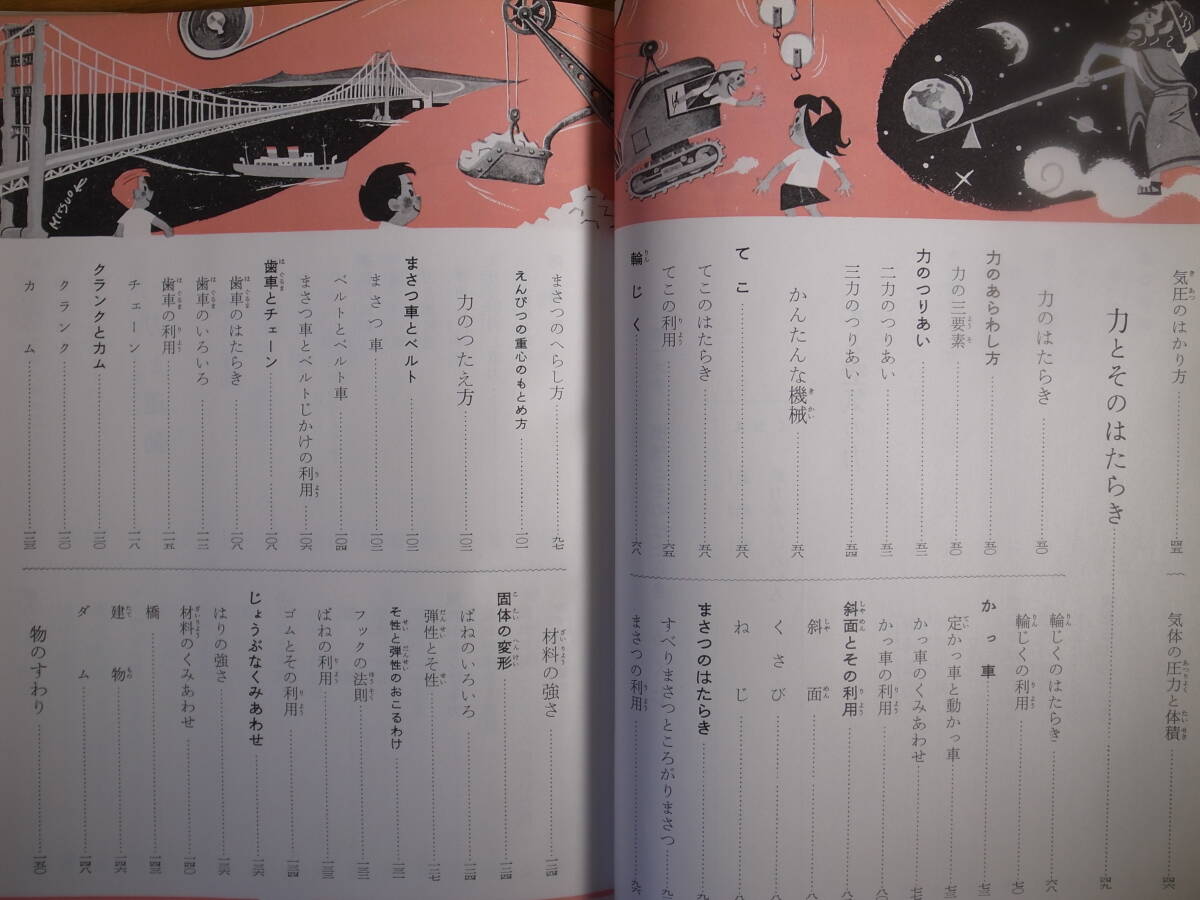 気圧のはかり方 四五
気体の圧力と体積 四六
力とそのはたらき 四九
力のはたらき 五〇
力のあらわし方 五〇
力の三要素 五〇
力のつりあい 五二
二力のつりあい 五二
三力のつりあい 五四
かんたんな機械 五八
てこ 五八
てこのはたらき 五八
てこの利用 六五
輪じく 六八
輪じくのはたらき 六八
輪じくの利用 七〇
かっ車 七三
定かっ車と動かっ車 七三
かっ車のくみあわせ
かっ車の利用
斜面とその利用
斜面
くさび
ねじ
まさつのはたらき
すべりまさつところがりまさつ
まさつの利用 九六
まさつのへらし方 九七
えんぴつの重心のもとめ方 一〇一
力のつたえ方 一〇二
まさつ車とベルト 一〇二
まさつ車 一〇二
ベルトとベルト車 一〇四
まさつ車とベルトじかけの利用 一〇六
歯車とチェーン 一〇八
歯車のはたらき 一〇八
歯車のいろいろ 一一二
歯車の利用 一一五
チェーン 一一八
クランクとカム 一二〇
クランク 一二〇
カム 一二三
材料の強さ 一二四
固体の変形 一二四
ばねのいろいろ 一二四
弾性とそ性 一二七
そ性と弾性のおこるわけ 一三一
フックの法則 一三二
ばねの利用 一三三
ゴムとその利用 一三四
じょうぶなくみあわせ 一三六
はりの強さ 一三六
材料のくみあわせ 一四〇
橋 一四三
建物 一四六
ダム 一四八
物のすわり 一五〇
MITSUOK